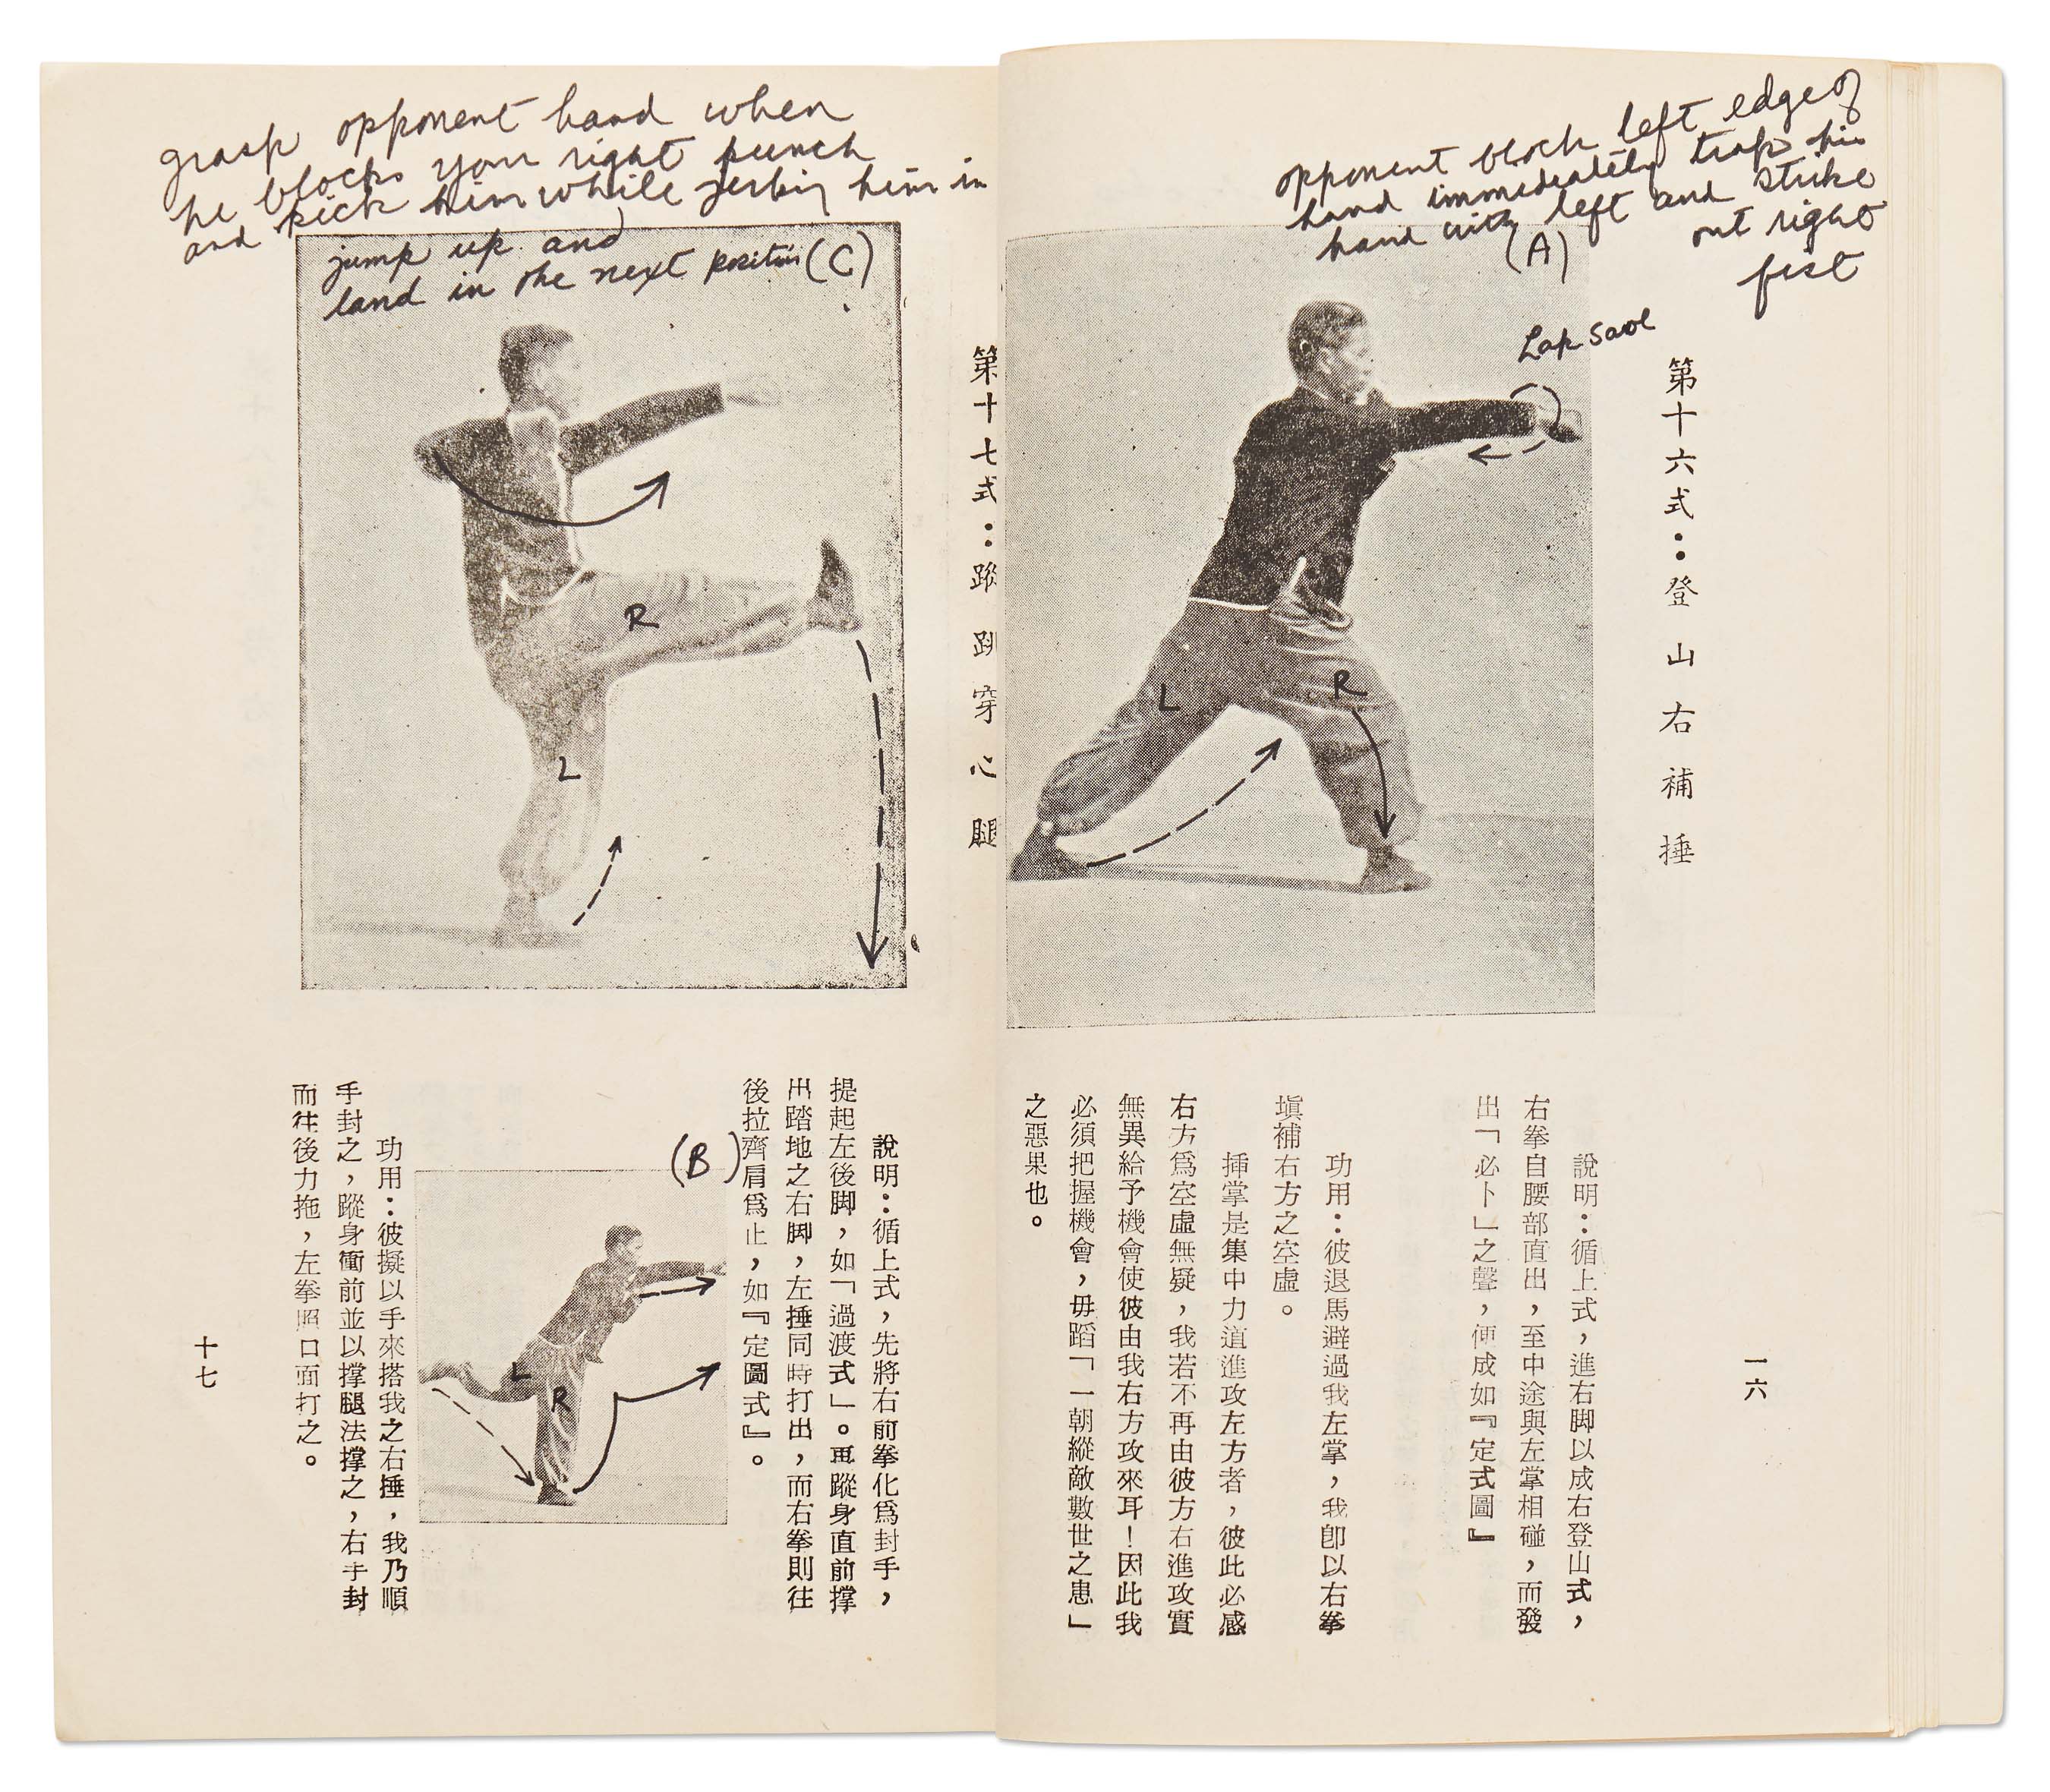 opponent block left edge of
hand immediately trap his
hand with left and strike
out right
fist
(A)
Lap Sao
第十六式：登山右補捶
L
R
說明：循上式，進右脚以成右登山式，
右拳自腰部直出，至中途與左掌相碰，而發
出「必卜」之聲，便成如『定式圖』
功用：彼退馬避過我左掌，我卽以右拳
塡補右方之空虛。
揷掌是集中力道進攻左方者，彼此必感
右方爲空虛無疑，我若不再由彼方右進攻實
無異給予機會使彼由我右方攻來耳！因此我
必須把握機會，毋蹈「一朝縱敵數世之患」
之惡果也。
一六
grasp opponent hand when
he blocks your right punch
and kick him while jerking him in
jump up and
land in the next position (C)
第十七式：蹤跳穿心腿
R
L
說明：循上式，先將右前拳化爲封手，
提起左後脚，如「過渡式」。再蹤身直前撐
出踏地之右脚，左捶同時打出，而右拳則往
後拉齊肩爲止，如『定圖式』。
(B)
L
R
功用：彼擬以手來搭我之右捶，我乃順
手封之，蹤身衝前並以撐腿法撐之，右手封
而往後力拖，左拳照口面打之。
十七